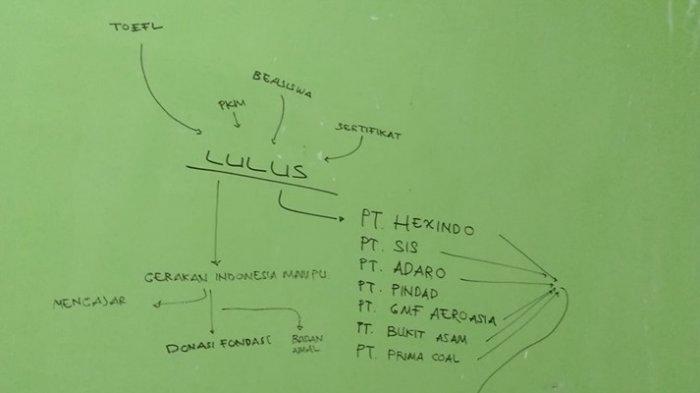 TOEFL
BEASISWA
PKM
SERTIFIKAT
LULUS
PT. HEXINDO
PT. SIS
PT. ADARO
PT. PINDAD
PT. GMF AEROASIA
PT. BUKIT ASAM
PT. PRIMA COAL
GERAKAN INDONESIA MAMPU
MENGAJAR
DONASI FONDASI
BADAN
AMAL